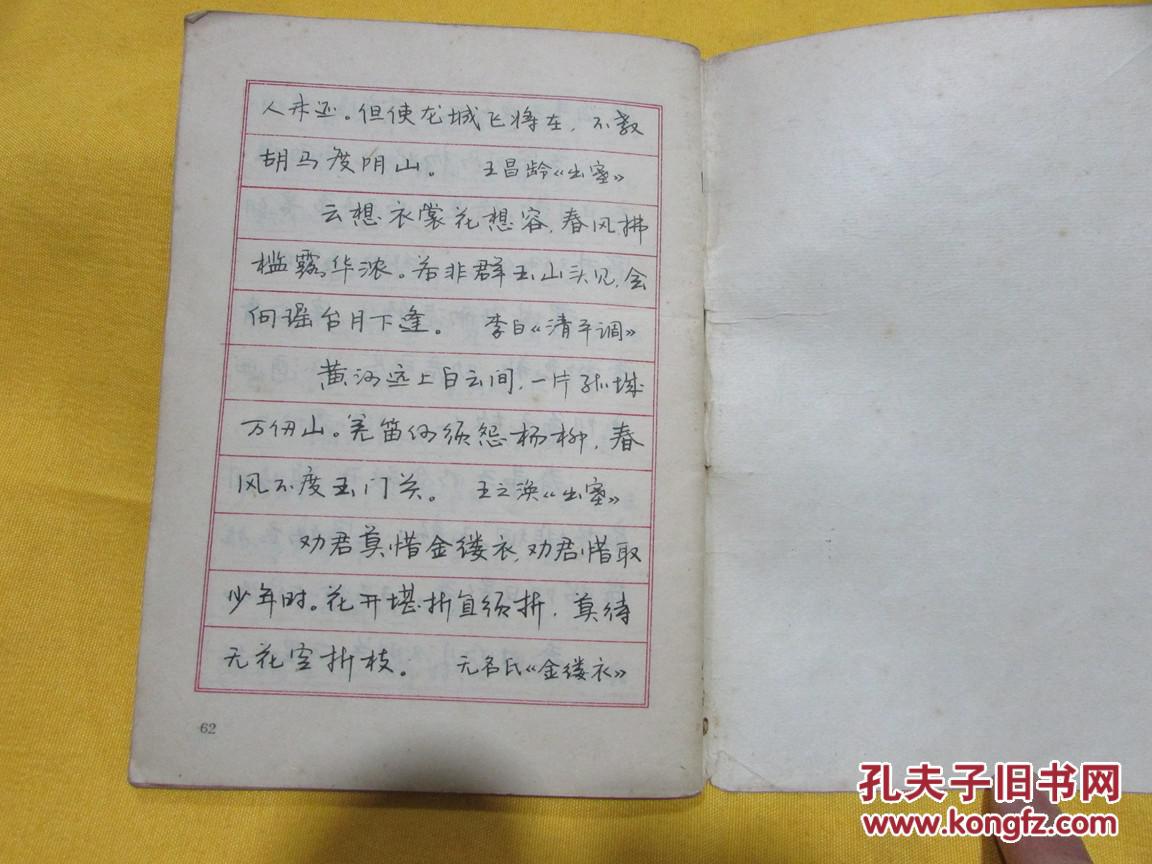 人未还。但使龙城飞将在，不教
胡马度阴山。 王昌龄《出塞》
云想衣裳花想容，春风拂
槛露华浓。若非群玉山头见，会
向瑶台月下逢。 李白《清平调》
黄河远上白云间，一片孤城
万仞山。羌笛何须怨杨柳，春
风不度玉门关。 王之涣《出塞》
劝君莫惜金缕衣，劝君惜取
少年时。花开堪折直须折，莫待
无花空折枝。 无名氏《金缕衣》
62
孔夫子旧书网
www.kongfz.com